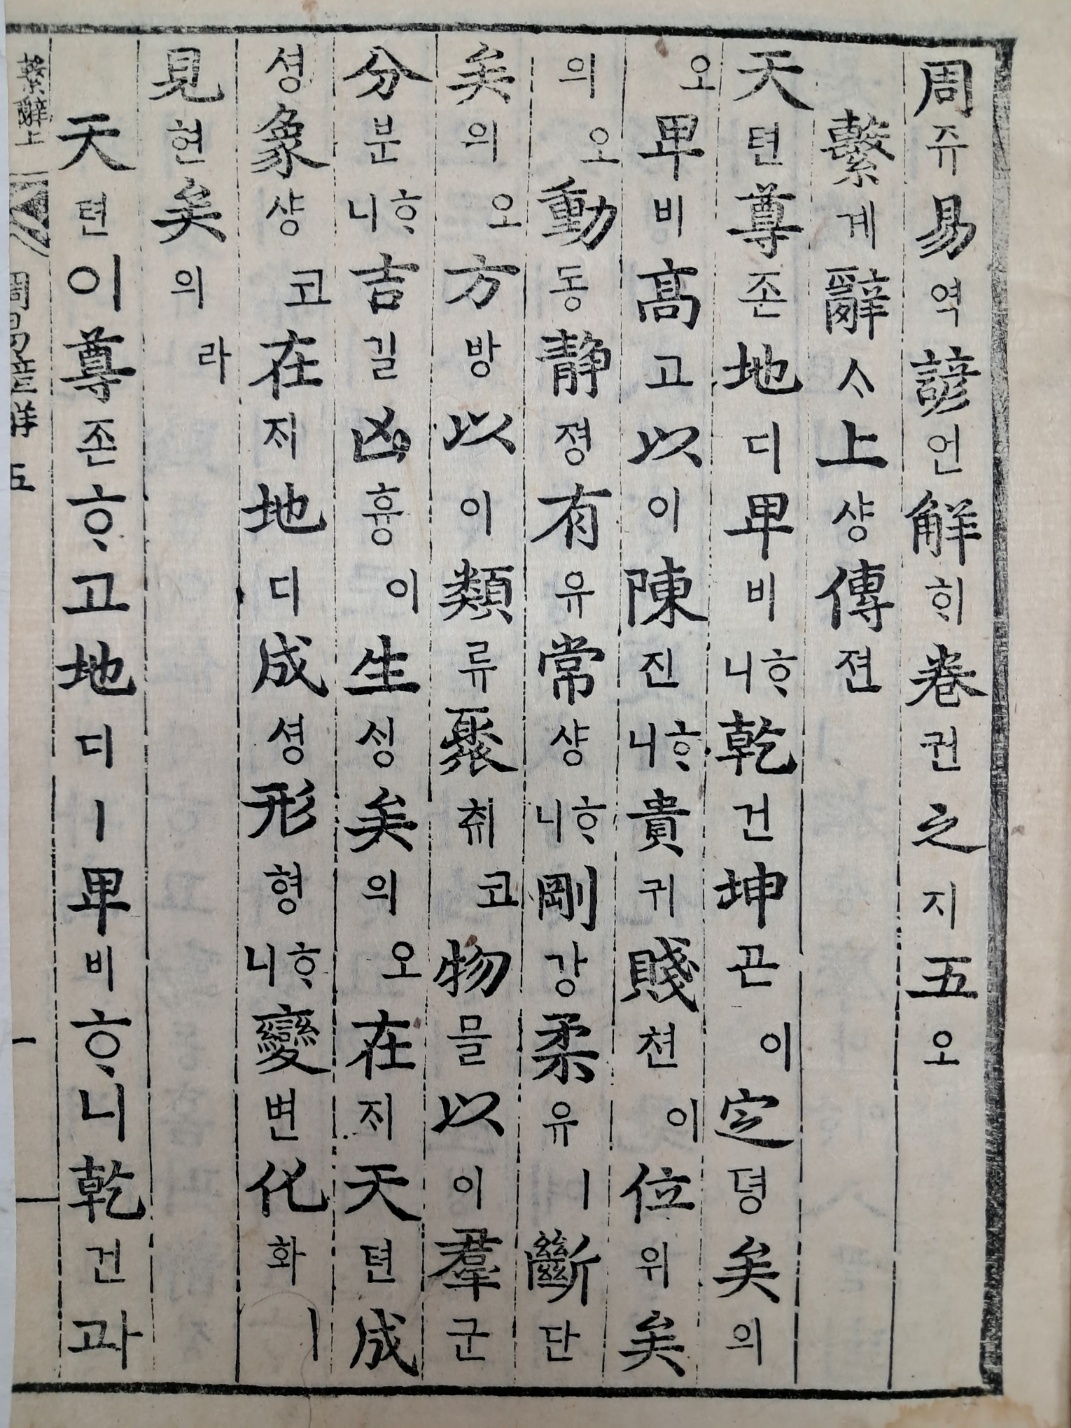 周쥬易역諺언解ᄒᆡ卷권之지五오
繫계辭ᄉ上샹傳젼
天텬尊존地디卑비ᄒᆞ니乾건坤곤이定뎡矣의
오卑비高고以이陳진ᄒᆞ니貴귀賤쳔이位위矣
의오動동靜졍有유常샹ᄒᆞ니剛강柔유ㅣ斷단
矣의오方방以이類류聚ᄎᆔ코物믈以이羣군
分분ᄒᆞ니吉길凶흉이生ᄉᆡᆼ矣의오在ᄌᆡ天텬成
셩象샹코在ᄌᆡ地디成셩形형ᄒᆞ니變변化화ㅣ
見현矣의라
天텬이尊존ᄒᆞ고地디ㅣ卑비ᄒᆞ니乾건과
繫辭上
周易諺解 五
一